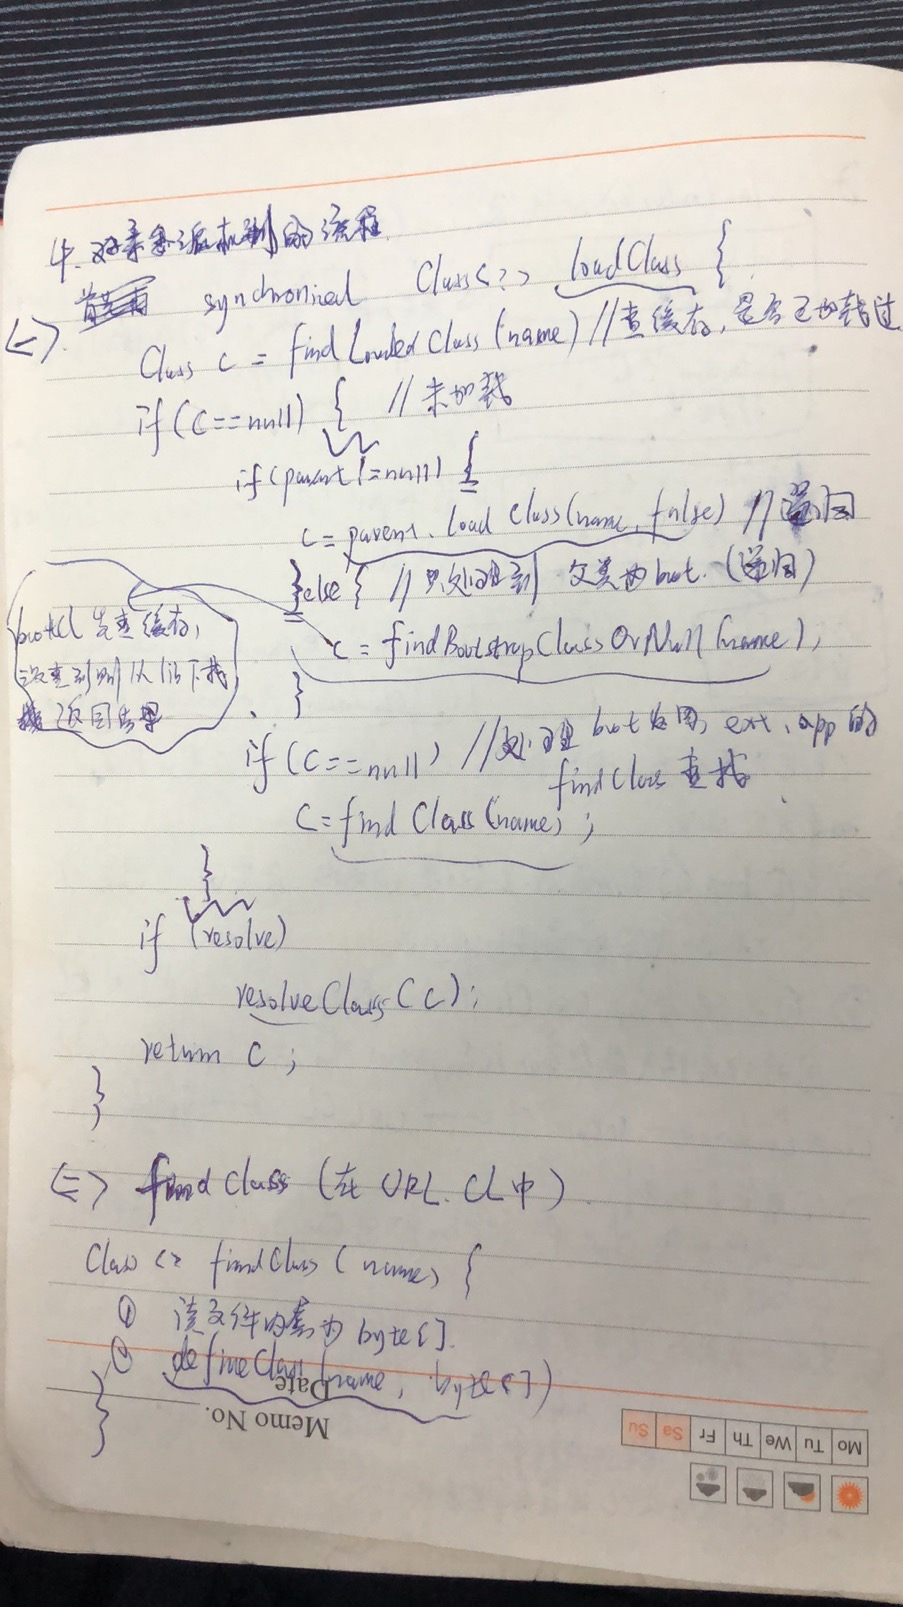 4. 双亲委派机制的流程
synchronized Class<?> loadClass {
<一>.
Class c = findLoadedClass(name) //查缓存, 是否已加载过
if(c==null) { //未加载
if(parent!=null) {
c=parent.loadClass(name,false) //递归
}else{ //只处理到 父类为boot.(递归)
c = findBootstrapClassOrNull(name),
}
bootcl 先查缓存,
没查到则从lib下找
返回结果
if(c==null) //处理 boot 返回, ext、app的
findClass 查找
c=findClass(name);
}
if (resolve)
resolveClass(c);
return c;
}
<二> findClass (在 URL.CL中)
Class<?> findClass(name) {
① 读文件内容为byte[].
② defineClass(name, byte[])
}
Date
Memo No.
Mo Tu We Th Fr Sa Su